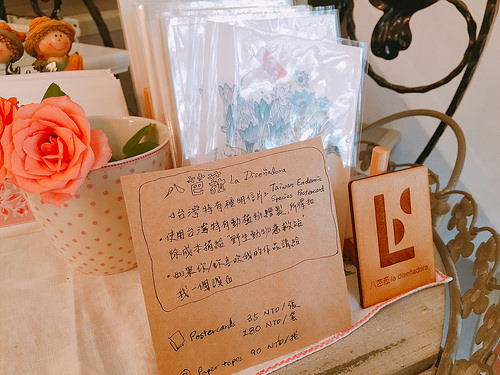 八芭菈 La Diseñadora
<台灣特有種明信片> Taiwan Endemic Species Postcard
• 使用台灣特有動植物繪製,所得扣
除成本捐給"野生動物急救站"
• 如果你/妳喜歡我的作品請給
我一個讚
Postcards 35 NTD/張
180 NTD/套
Paper tapes 90 NTD/捲
八芭菈 la diseñadora